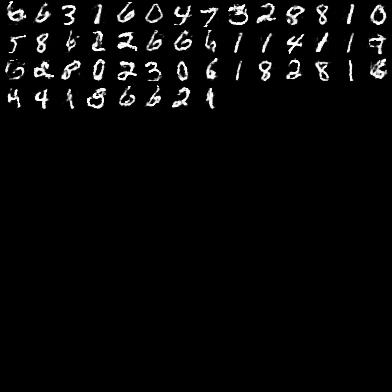 6 6 3 1 6 0 4 7 3 2 8 8 1 0
5 8 6 2 2 6 6 6 1 1 4 1 1 7
5 2 8 0 2 3 0 6 1 8 2 8 1 6
4 4 1 8 6 6 2 1